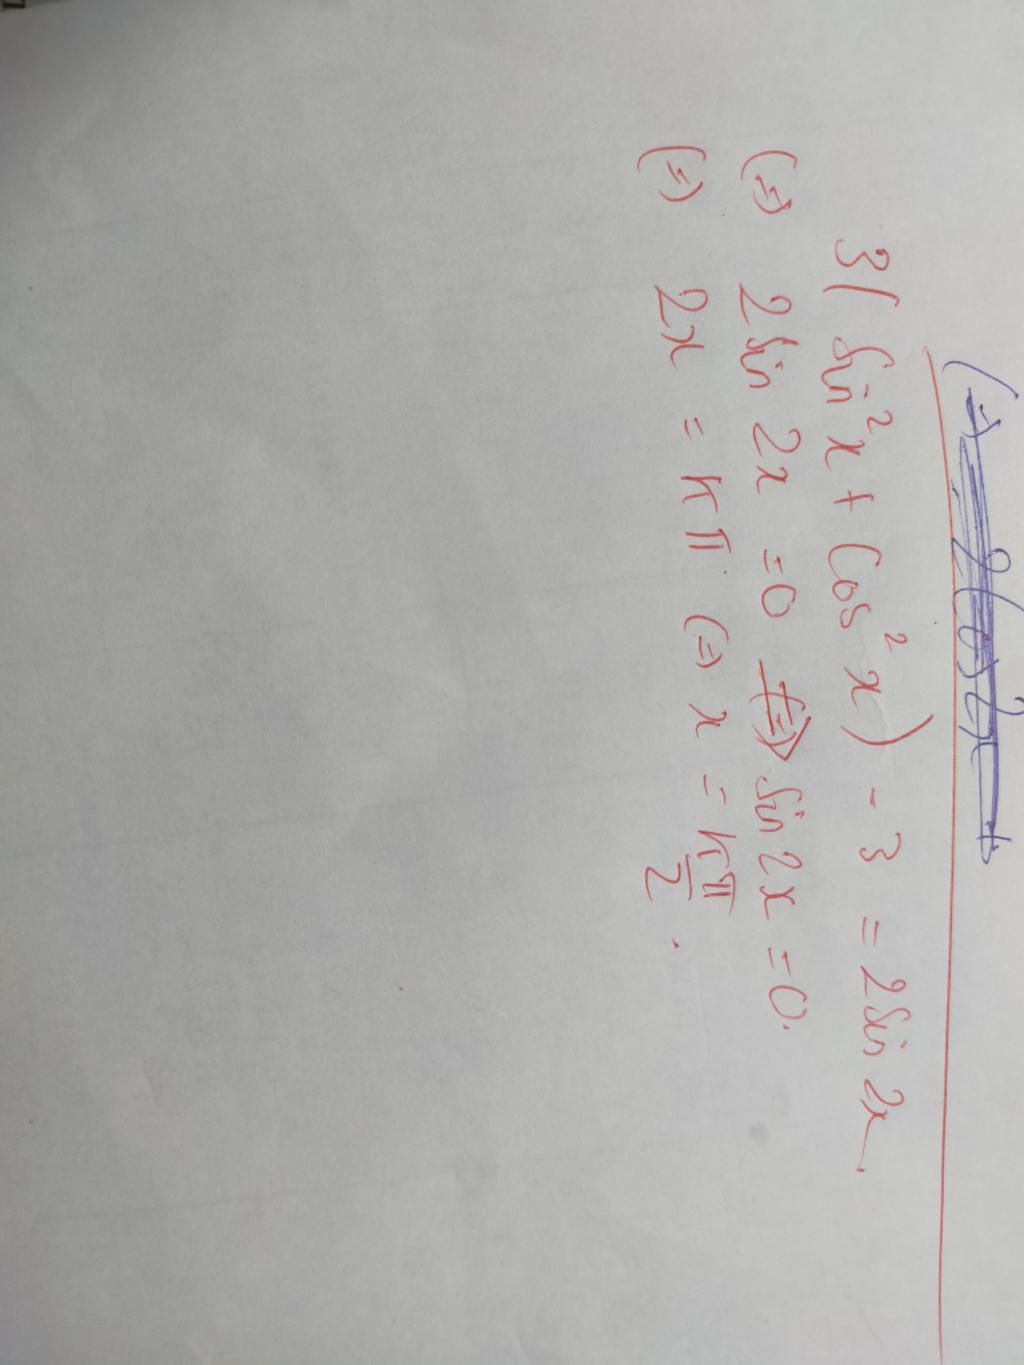 (=) 2cos2x
3(sin²x + cos²x) - 3 = 2sin2x.
(=) 2sin2x = 0 (=) sin2x = 0.
(=) 2x = kπ (=) x = kπ/2.